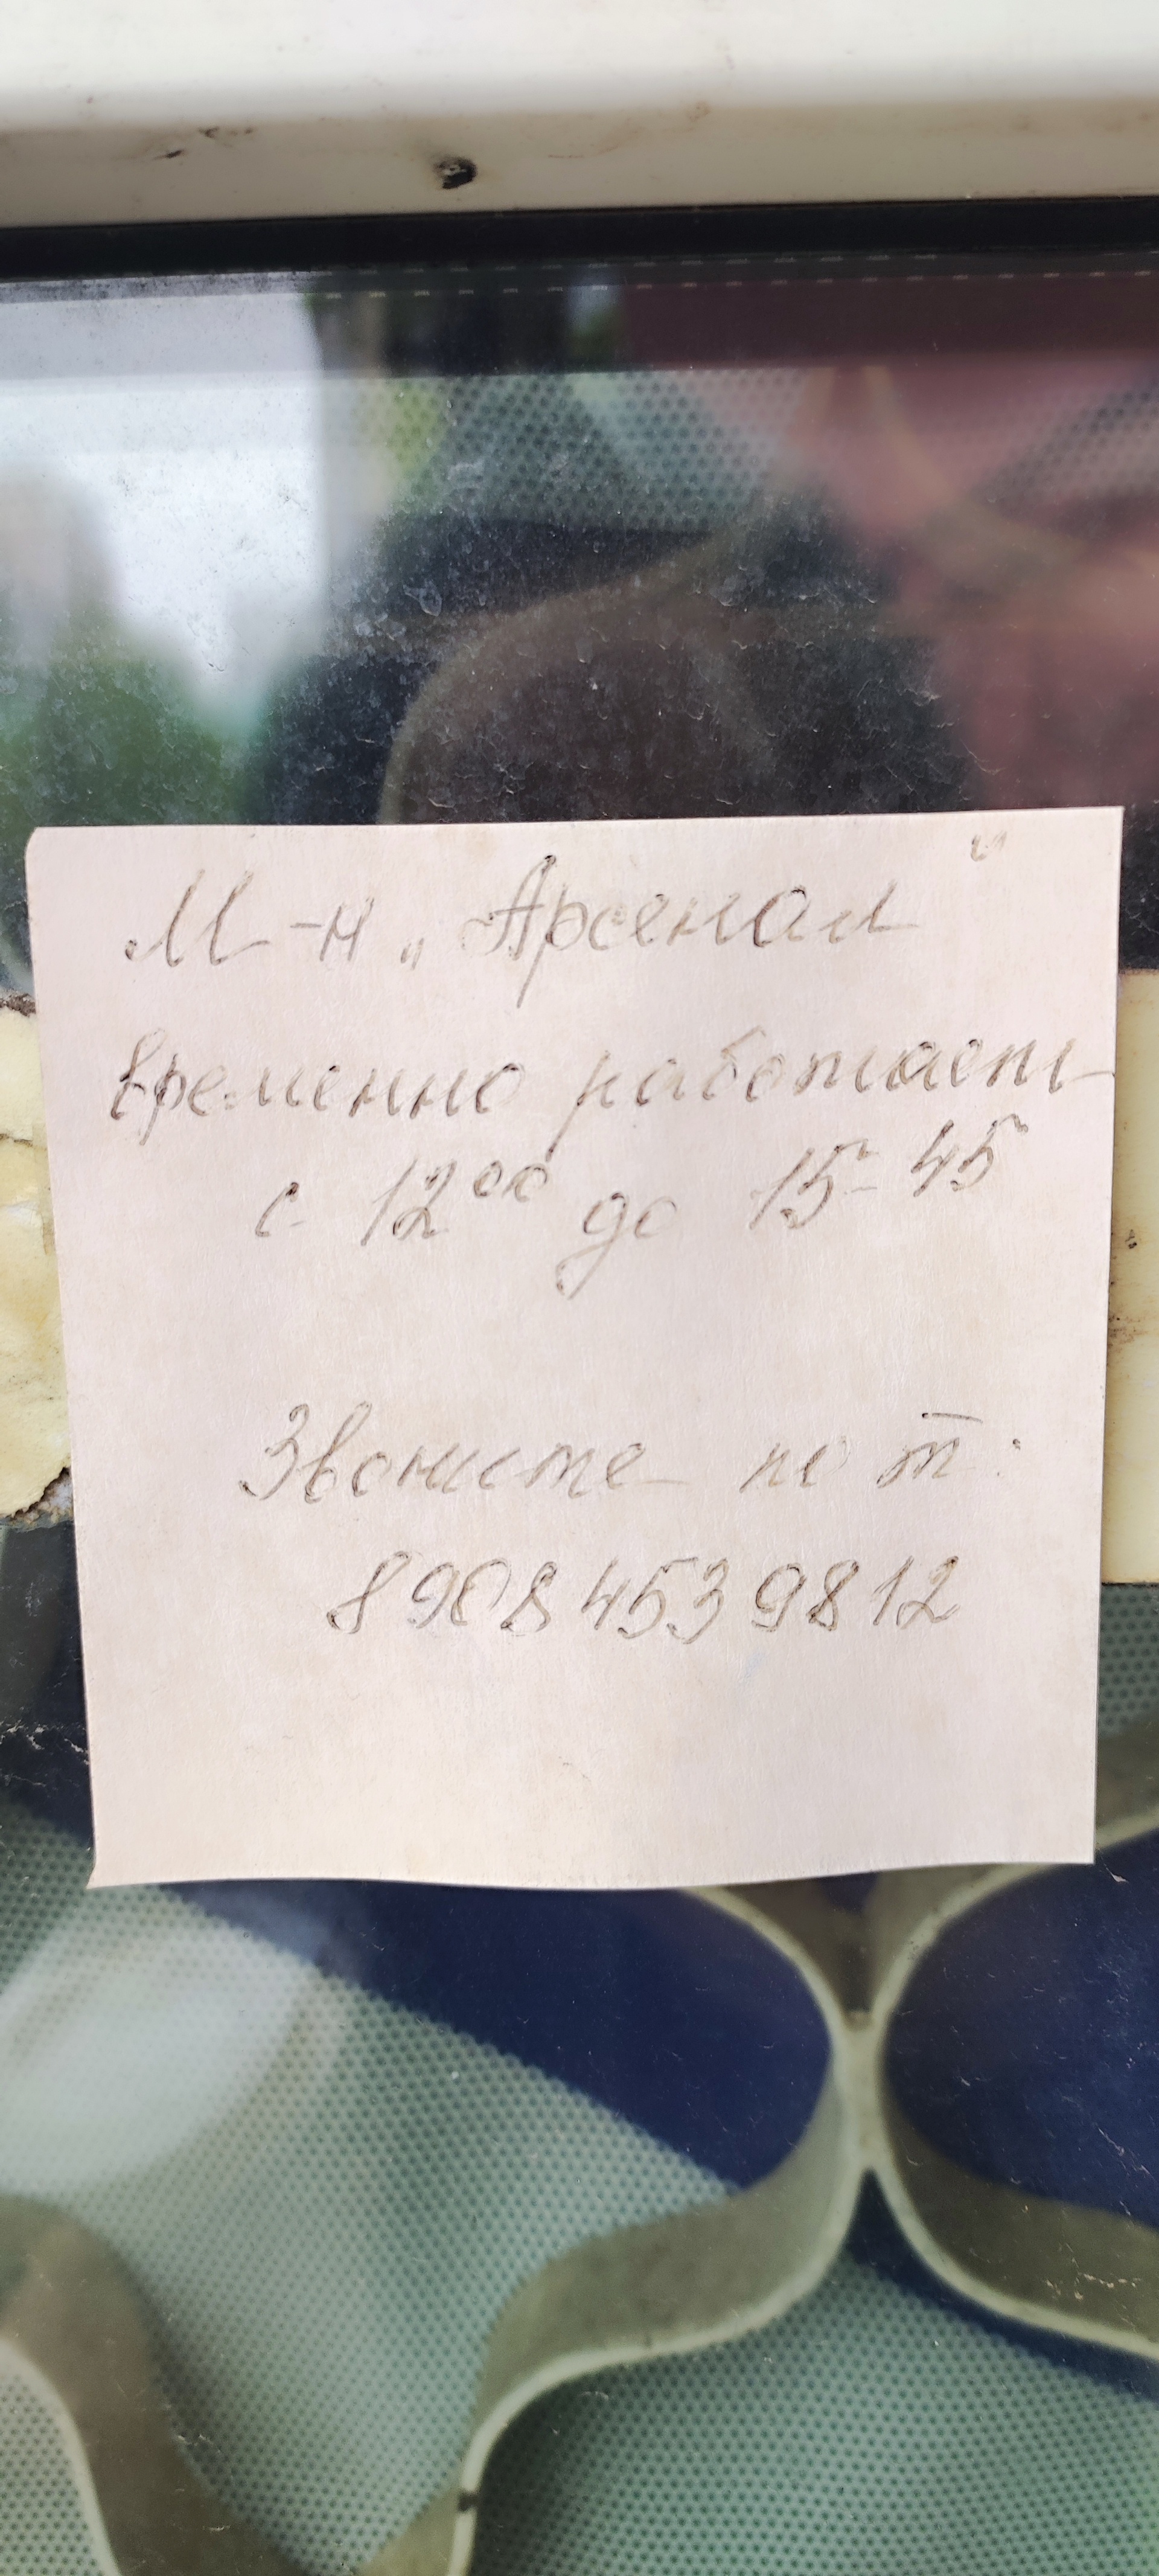 М-н „Арсенал"
временно работает
с 12⁰⁰ до 15-45
Звоните по т:
89084539812